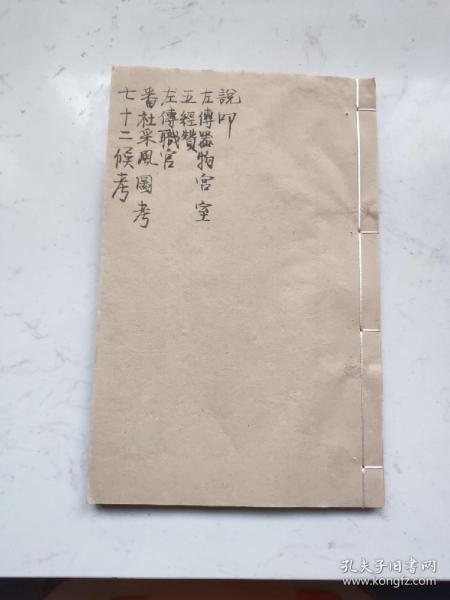 說叩
左傳器物宮室
五經贊
左傳職官
番社采風圖考
七十二候考
孔夫子旧书网
www.kongfz.com